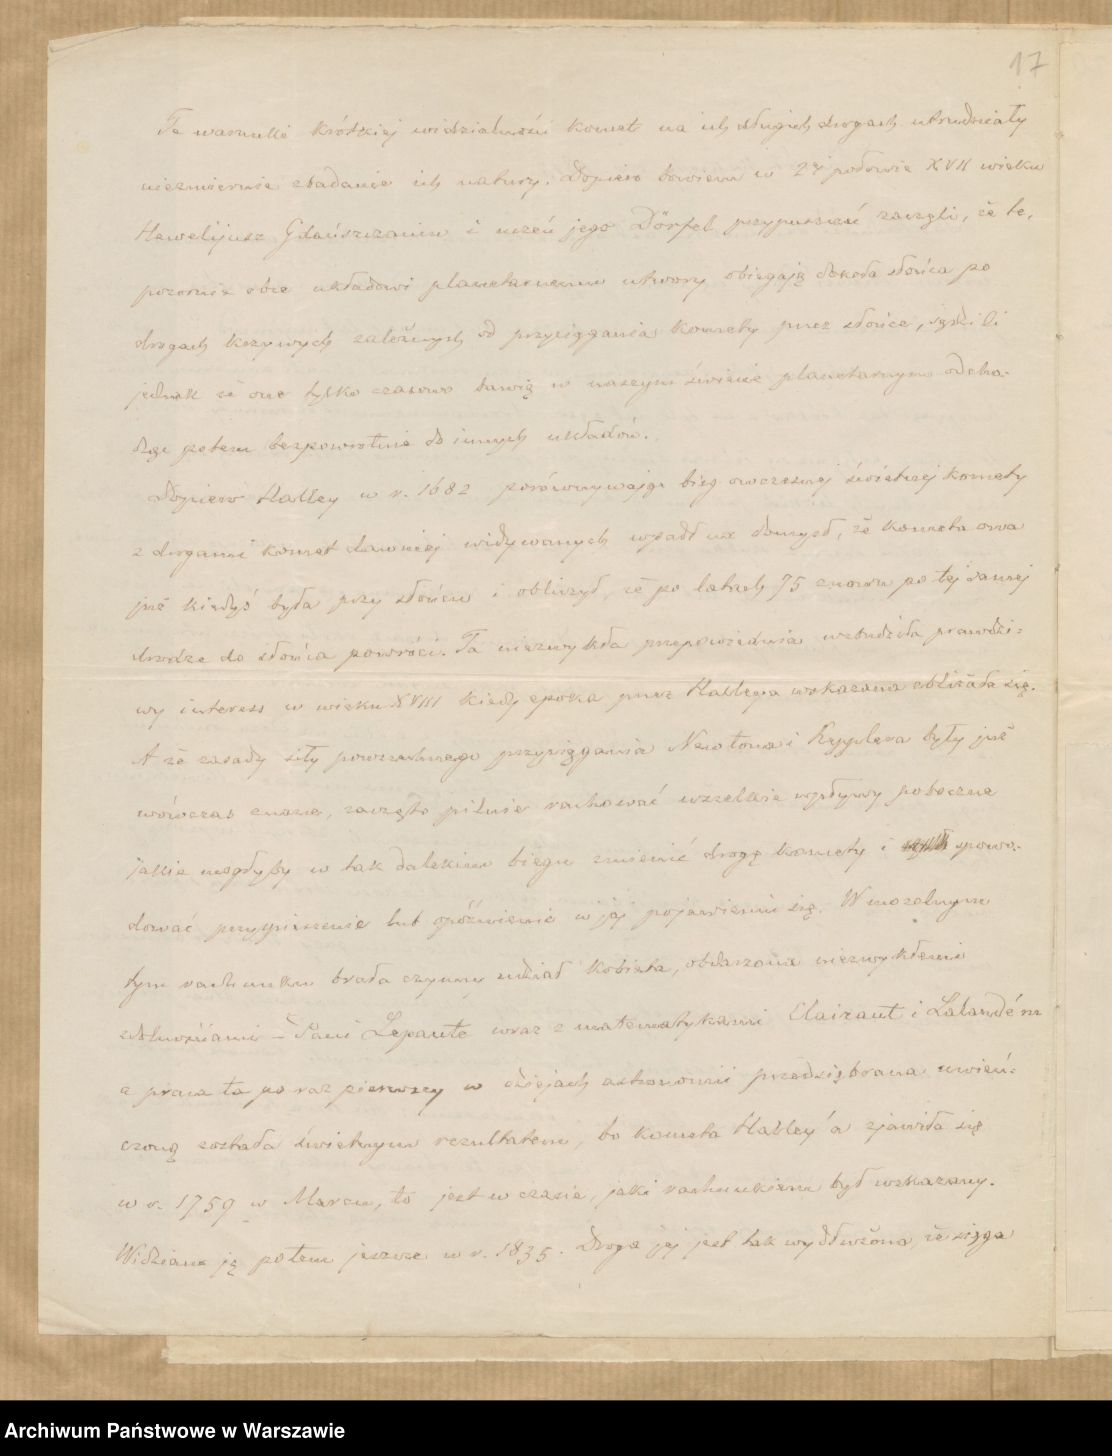 17
Te warunki krótkiej widzialności komet na ich długich drogach utrudniały
niezmiernie zbadanie ich natury. Dopiero bowiem w 2ej połowie XVII wieku
Hewelijusz Gdańszczanin i uczeń jego Dörfel przypuszczać zaczęli, że te,
pozornie obce układowi planetarnemu utwory obiegają dokoła słońca po
drogach krzywych zależnych od przyciągania komety przez słońce, sądzili
jednak że one tylko czasowo bawią w naszym świecie planetarnym odcho-
dząc potem bezpowrotnie do innych układów.
Dopiero Halley w r. 1682 porównywając bieg ówczesnej świetnej komety
z drogami komet dawniej widywanych wpadł na domysł, że kometa owa
już kiedyś była przy słońcu i obliczył, że po latach 75 znowu po tej samej
drodze do słońca powróci. Ta niezwykła przepowiednia wzbudziła prawdzi-
wy interess w wieku XVIII kiedy epoka przez Halleya wskazana zbliżała się.
A że zasady siły powszechnego przyciągania Newtona i Kepplera były już
wówczas znane, zaczęto pilnie rachować wszelkie wpływy poboczne
jakie mogłyby w tak dalekim biegu zmienić drogę komety i spowo-
dować przyspieszenie lub opóźnienie w jej pojawieniu się. W mozolnym
tym rachunku brała czynny udział kobieta, obdarzona niezwykłemi
zdolnościami – Pani Lepaute wraz z matematykami Clairaut i Lalandém
a praca ta po raz pierwszy w dziejach astronomii przedsiębrana uwień-
czoną została świetnym rezultatem, bo kometa Halley'a zjawiła się
w r. 1759 w Marcu, to jest w czasie, jaki rachunkiem był wskazany.
Widziano ją potem jeszcze w r. 1835. Droga jej jest tak wydłużona, że sięga
Archiwum Państwowe w Warszawie